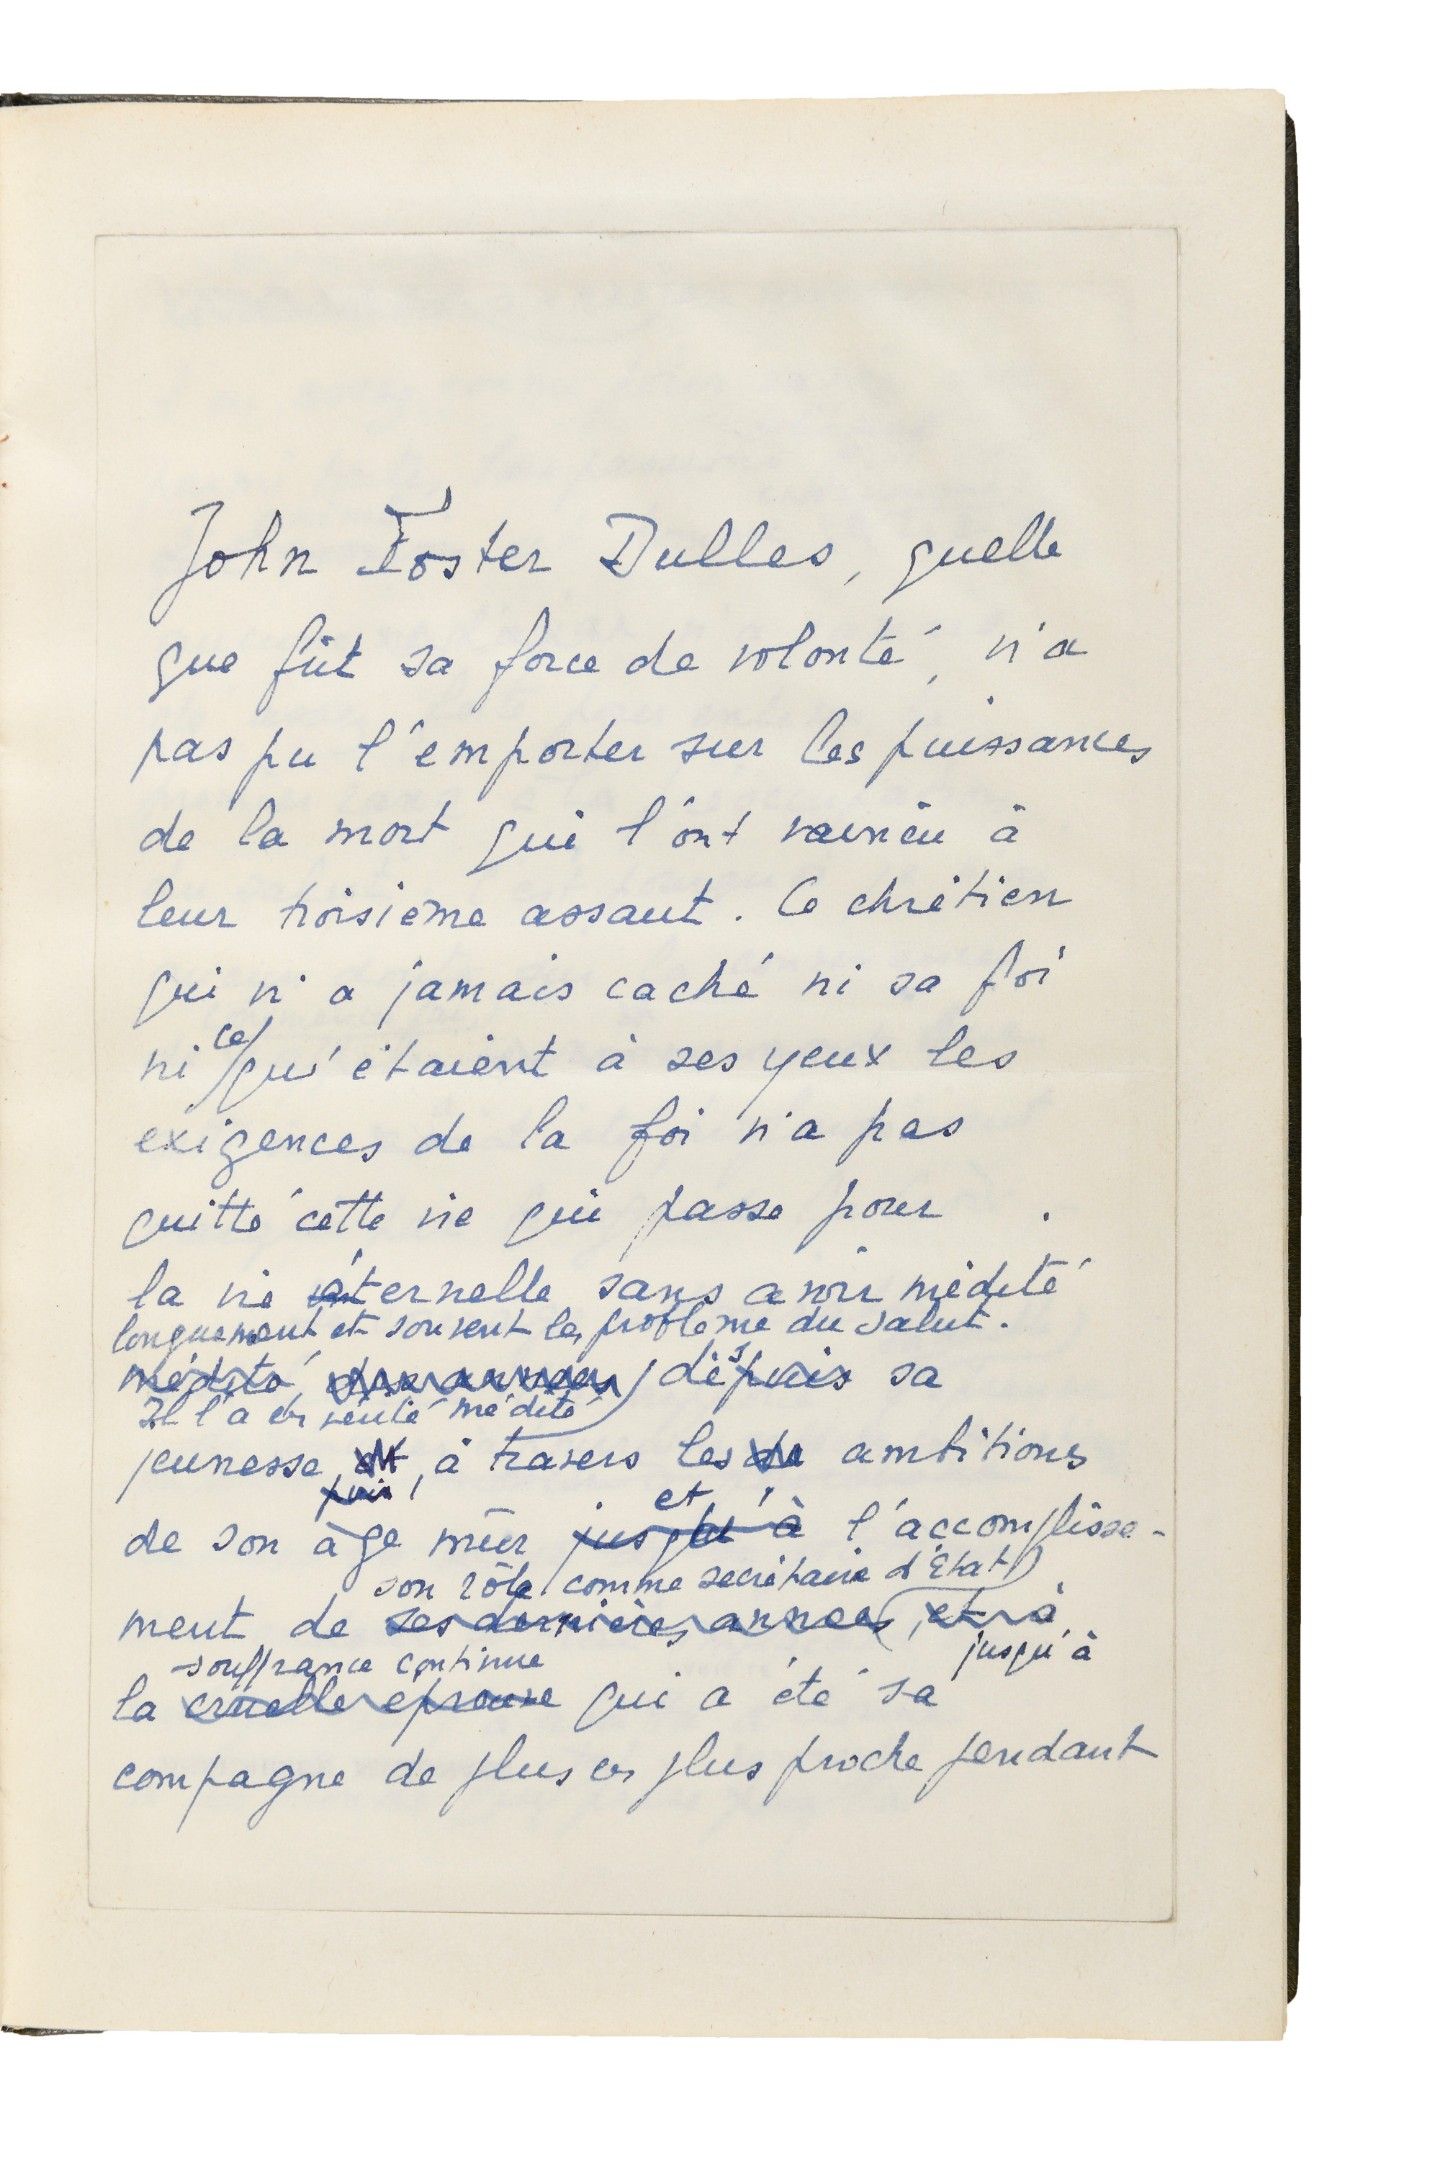 John Foster Dulles, quelle
que fût sa force de volonté, n'a
pas pu l'emporter sur les puissances
de la mort qui l'ont vaincu à
leur troisième assaut. Ce chrétien
qui n'a jamais caché ni sa foi
ni ce qu'étaient à ses yeux les
exigences de la foi n'a pas
quitté cette vie qui passe pour
la vie éternelle sans avoir médité
longuement et souvent le problème du salut.
médité, depuis sa
Il l'a en vérité médité
jeunesse, et, à travers les de ambitions
puis
de son âge mûr jusqu'à et l'accomplisse-
son rôle comme secrétaire d'État
ment de ses dernières années, et à
jusqu'à
souffrance continue
la cruelle épreuve qui a été sa
compagne de plus en plus proche pendant